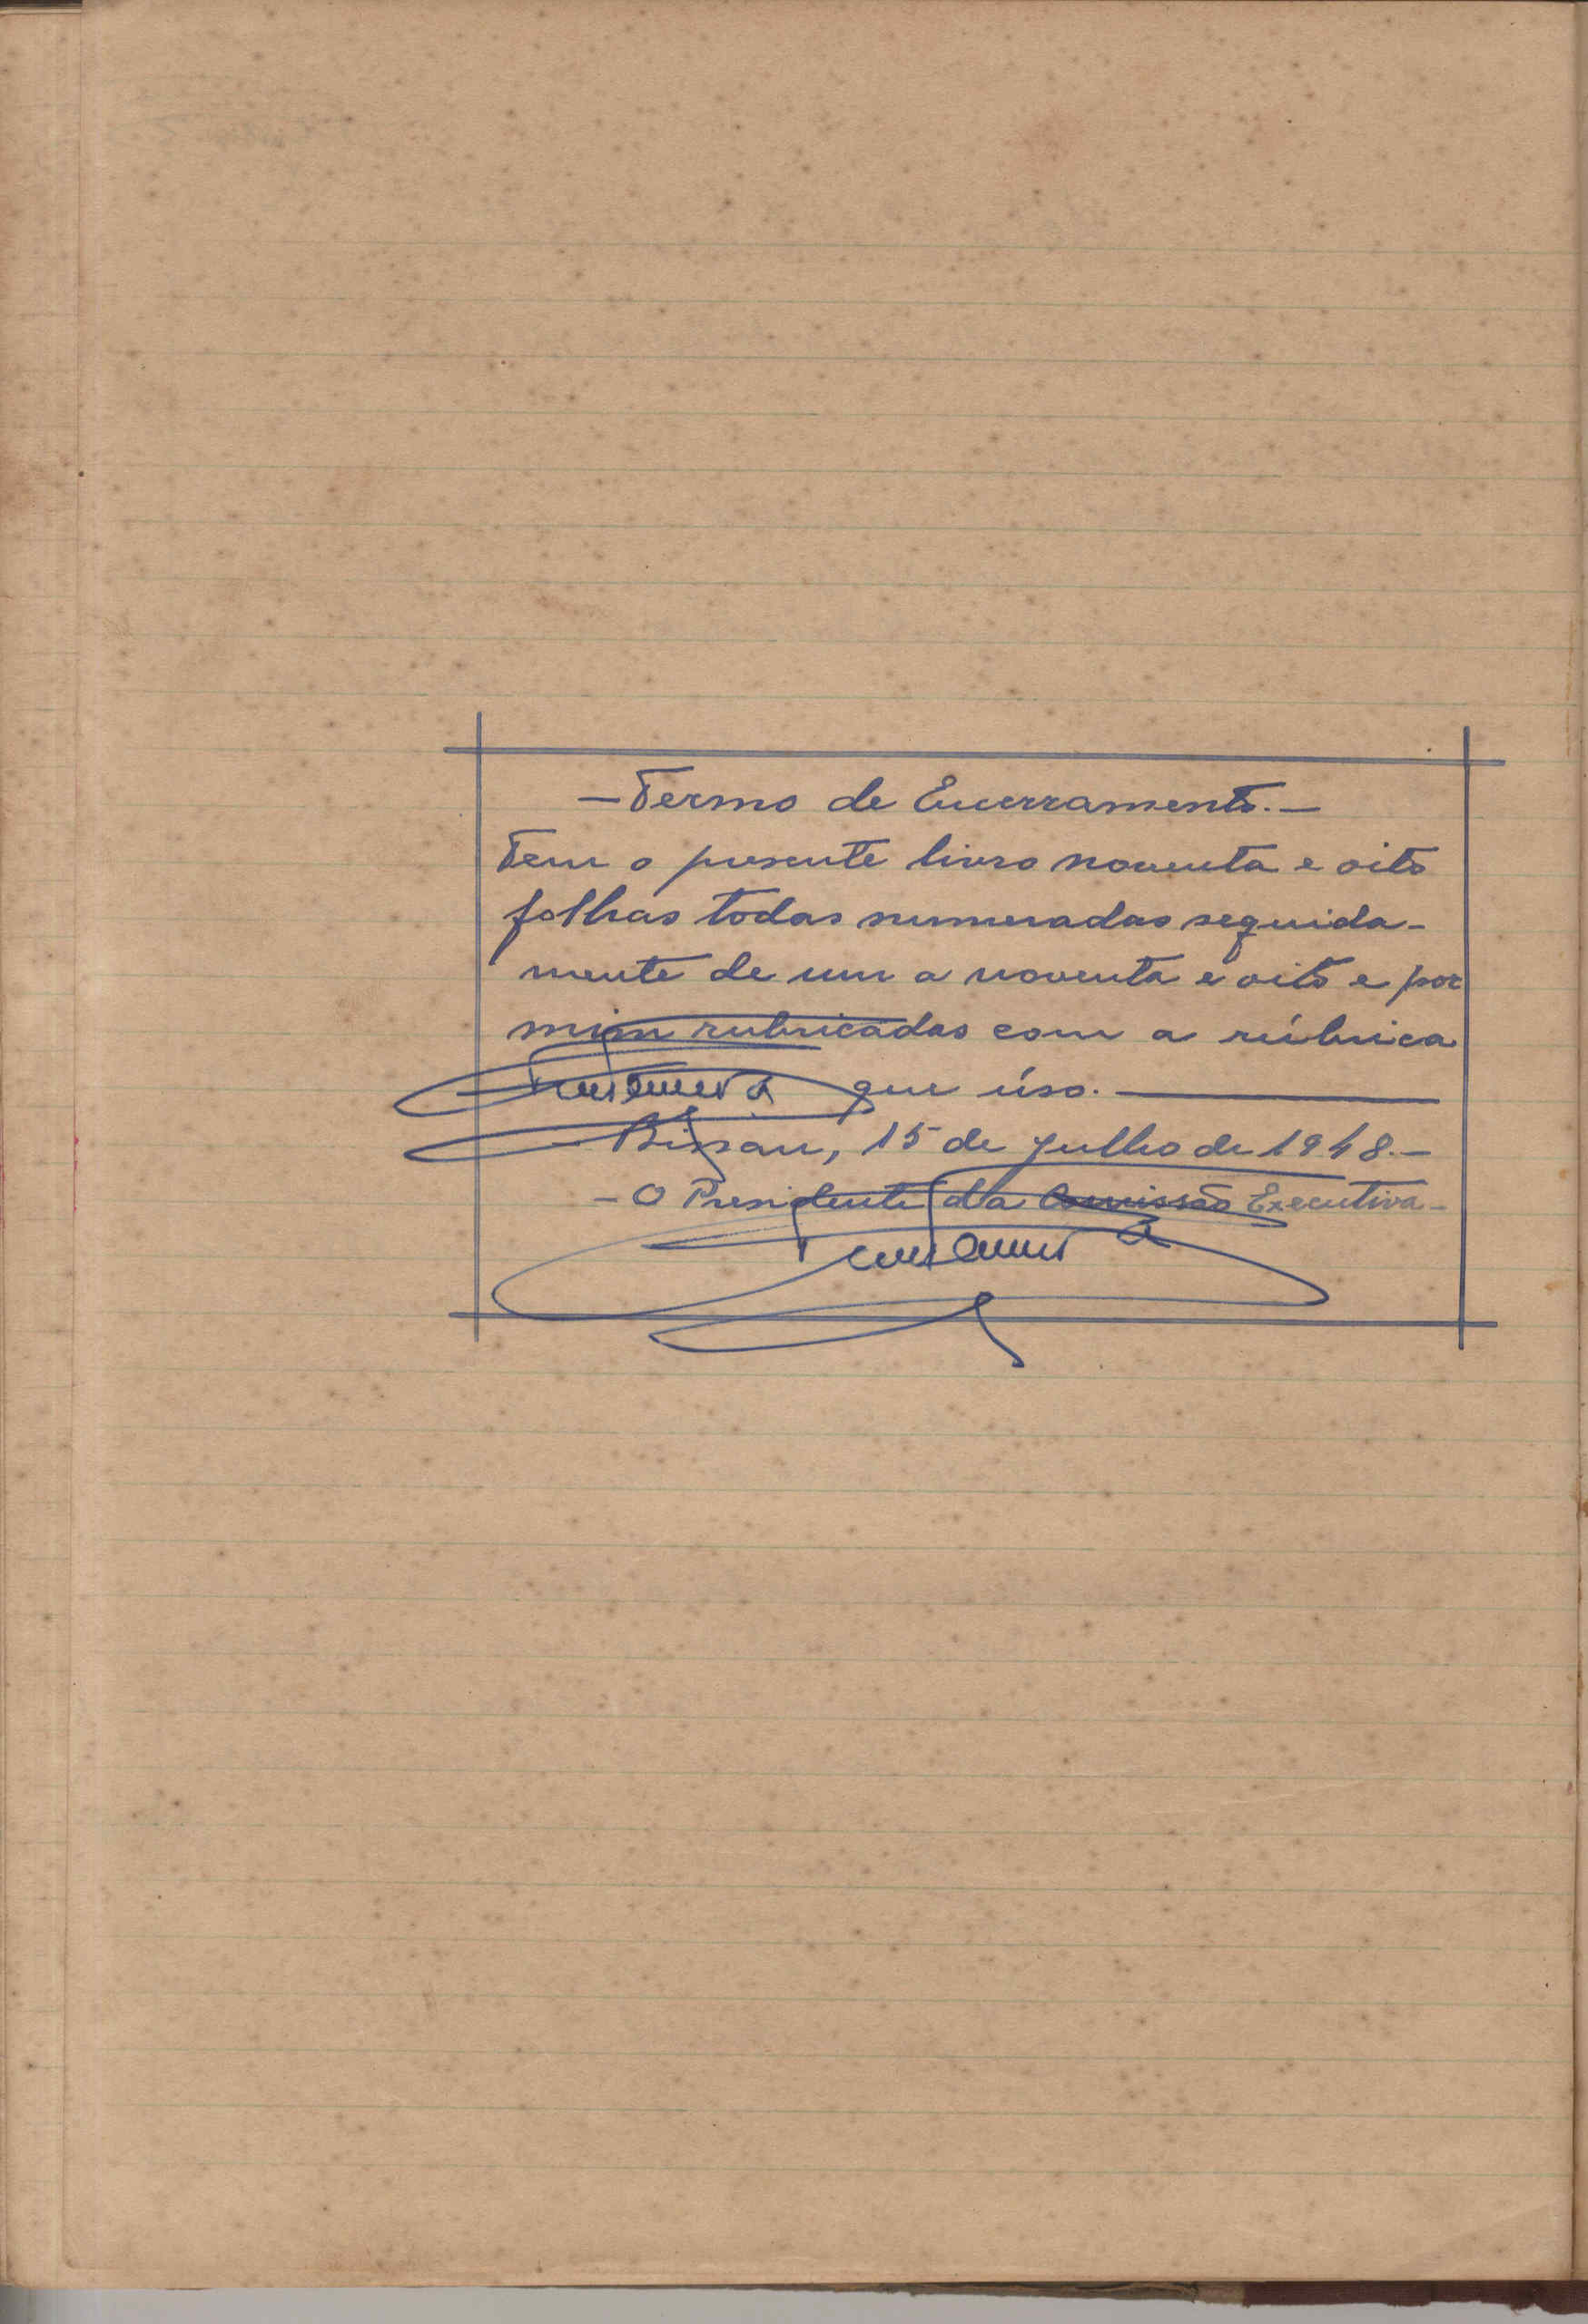 —Termo de Encerramento.—
Tem o presente livro noventa e oito
folhas todas numeradas seguida-
mente de um a noventa e oito e por
mim rubricadas com a rúbrica
que úso.
Bissau, 15 de Julho de 1948.—
— O Presidente da Comissão Executiva —